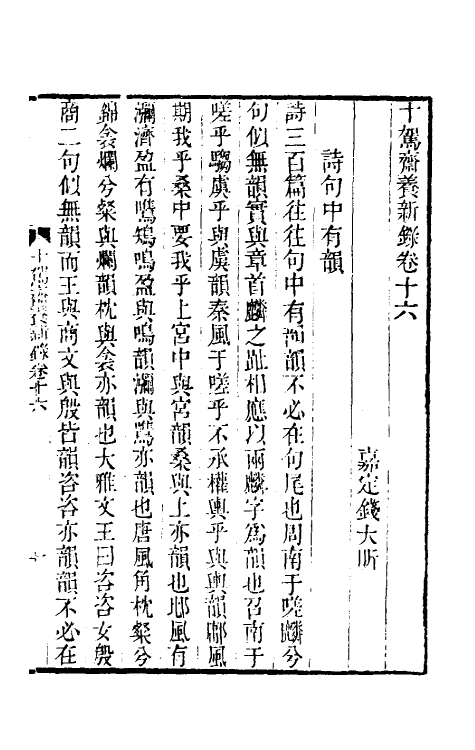 十駕齋養新錄卷十六
嘉定錢大昕
詩句中有韻
詩三百篇往往句中有韻不必在句尾也周南于嗟麟兮
句似無韻實與章首麟之趾相應以兩麟字爲韻也召南于
嗟乎騶虞乎與虞韻秦風于嗟乎不承權輿乎與輿韻鄘風
期我乎桑中要我乎上宮中與宮韻桑與上亦韻也邶風有
瀰濟盈有鷕雉鳴盈與鳴韻瀰與鷕亦韻也唐風角枕粲兮
錦衾爛兮粲與爛韻枕與衾亦韻也大雅文王曰咨咨女殷
商二句似無韻而王與商文與殷皆韻咨咨亦韻韻不必在
十駕齋養新錄卷十六